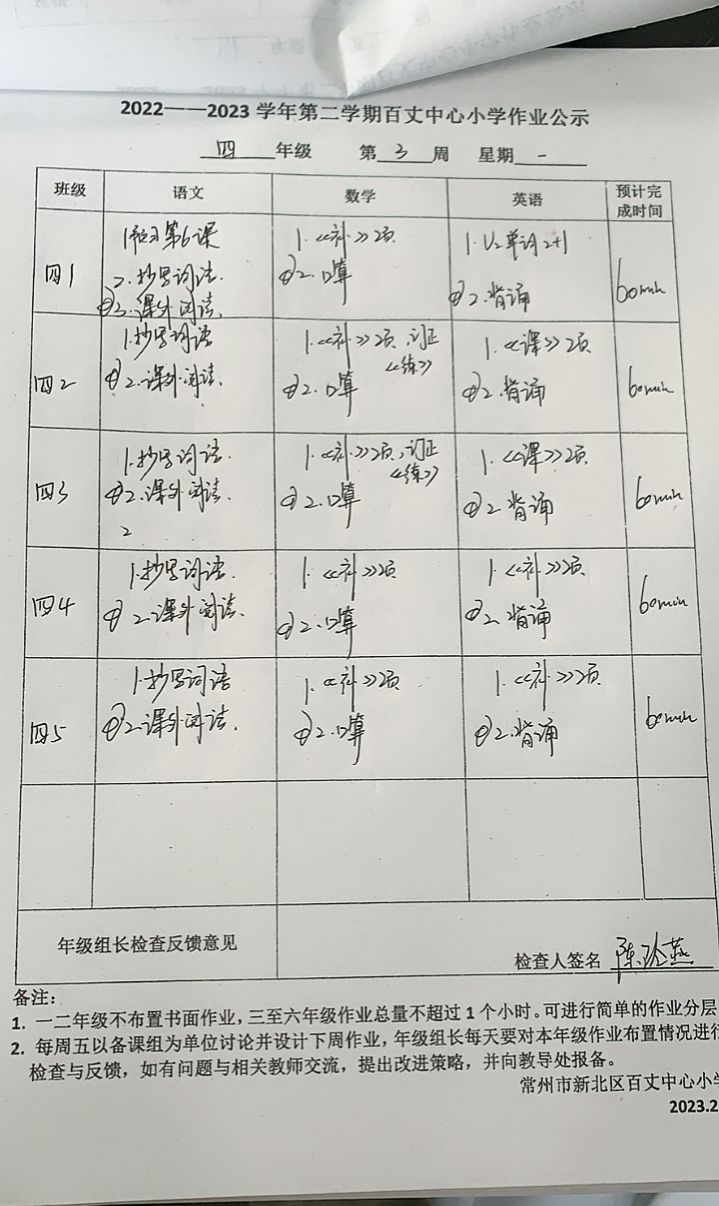 2022——2023 学年第二学期百丈中心小学作业公示
四 年级 第 3 周 星期 一
班级 语文 数学 英语 预计完成时间
四1
1.预习第6课
2.抄写词语.
3.课外阅读.
1.《补》2页
2.口算
1.U2单词2+1
2.背诵
60min
四2
1.抄写词语
2.课外阅读.
1.《补》2页,订正《练》
2.口算
1.《课》2页
2.背诵
60min
四3
1.抄写词语.
2.课外阅读.
2
1.《补》2页,订正《练》
2.口算
1.《课》2页
2.背诵
60min
四4
1.抄写词语.
2.课外阅读.
1.《补》2页
2.口算
1.《补》2页
2.背诵
60min
四5
1.抄写词语
2.课外阅读.
1.《补》2页
2.口算
1.《补》2页
2.背诵
60min
年级组长检查反馈意见
检查人签名 陈 燕
备注:
1. 一二年级不布置书面作业,三至六年级作业总量不超过 1 个小时。可进行简单的作业分层
2. 每周五以备课组为单位讨论并设计下周作业,年级组长每天要对本年级作业布置情况进行
检查与反馈,如有问题与相关教师交流,提出改进策略,并向教导处报备。
常州市新北区百丈中心小学
2023.2